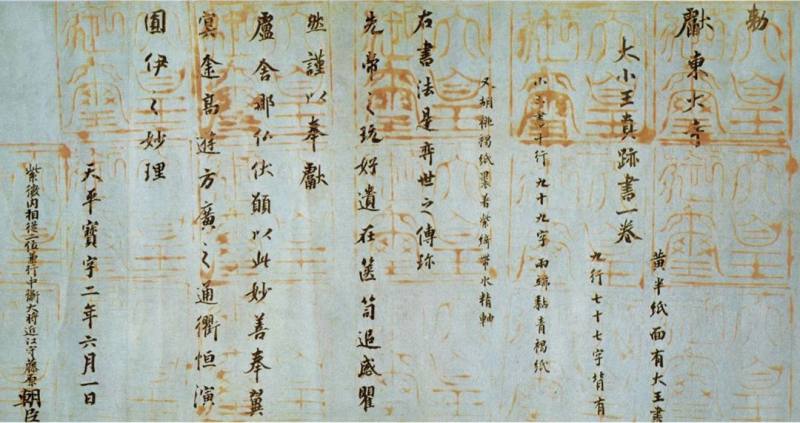 勅
獻東大寺
大小王真跡書一卷
黄半紙面有大王書
九行七十七字背有
小王書十行九十九字兩端黏青褐紙
又胡桃褐紙裏着紫綺帶水精軸
右書法是弈世之傳珎
先帝之玩好遺在篋笥追感瞿
然謹以奉獻
盧舍那仏伏願以此妙善奉翼
冥途高遊方廣之通衢恒演
圓伊之妙理
天平寶字二年六月一日
紫微内相從二位兼行中衛大將近江守藤原朝臣